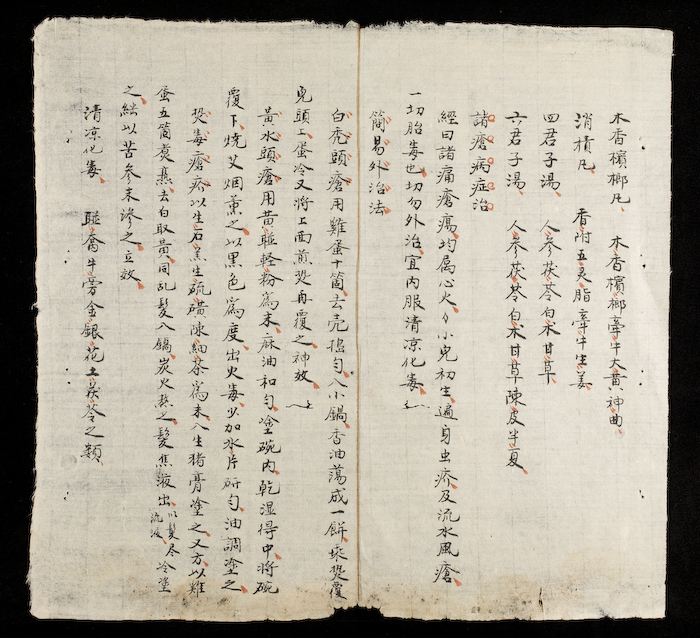 木香檳榔凡 木香檳榔牽牛大黃神曲
消積凡 香附五灵脂牽牛生姜
四君子湯 人參茯苓白术甘草
六君子湯 人參茯苓白术甘草陳皮半夏
諸瘡病症治
經曰諸痛瘡瘍均属心火々小兒初生遍身虫疥及流水風瘡
一切胎毒也切勿外治宜內服清凉化毒
簡易外治法
白禿頭瘡用雞蛋十箇去壳搗勻入小鍋香油蕩成一餅乘𤍠覆
兒頭上蛋冷又將上面煎𤍠再覆之神效
黃水頭瘡用黃 輕粉為末麻油和勻塗碗內乾湿得中將碗
覆下燒艾烟薰之以黑色為度出火毒少加水片研勻油調塗之
𤍠毒瘡疥以生石羔生硫磺陳細茶為末入生猪膏塗之又方以雞
蛋五箇煑熟去白取黃同乱髮入鍋炭火熬之髮焦液出以髮尽流液冷塗
之 以苦參末滲之立效
清凉化毒 翹禽牛旁金銀花土茯苓之類